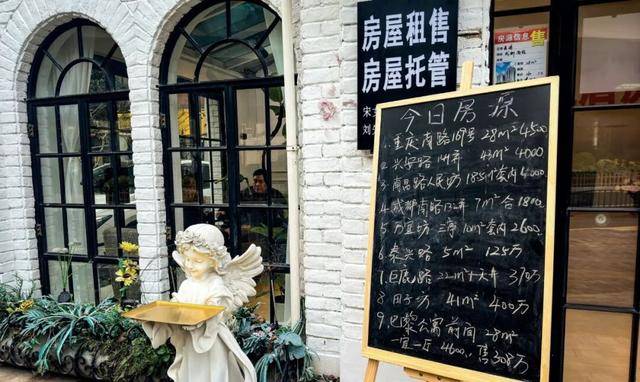 房屋租售
房屋托管
宋
刘
房源信息
售
今日房源
1. 重庆南路169号 28m² 4500
2. 兴安路 43m² 4000
3. 南昌路人民坊 18.5m²套内 4000
4. 城都南路 7m² 合 1800
5. 万宜坊 三亭 10m²套内 2600
6. 泰兴路 5m² 125万
7. 巨鹿路 22m²+天井 390万
8. 田子坊 41m² 400万
9. 巴黎公寓 前间 28m²
一室一厅 4600, 售308万